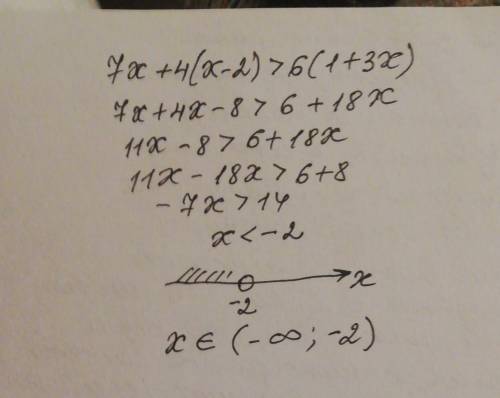 7x+4(x-2)>6(1+3x)
7x+4x-8>6+18x
11x-8>6+18x
11x-18x>6+8
-7x>14
x<-2
x
-2
x∈(-∞;-2)